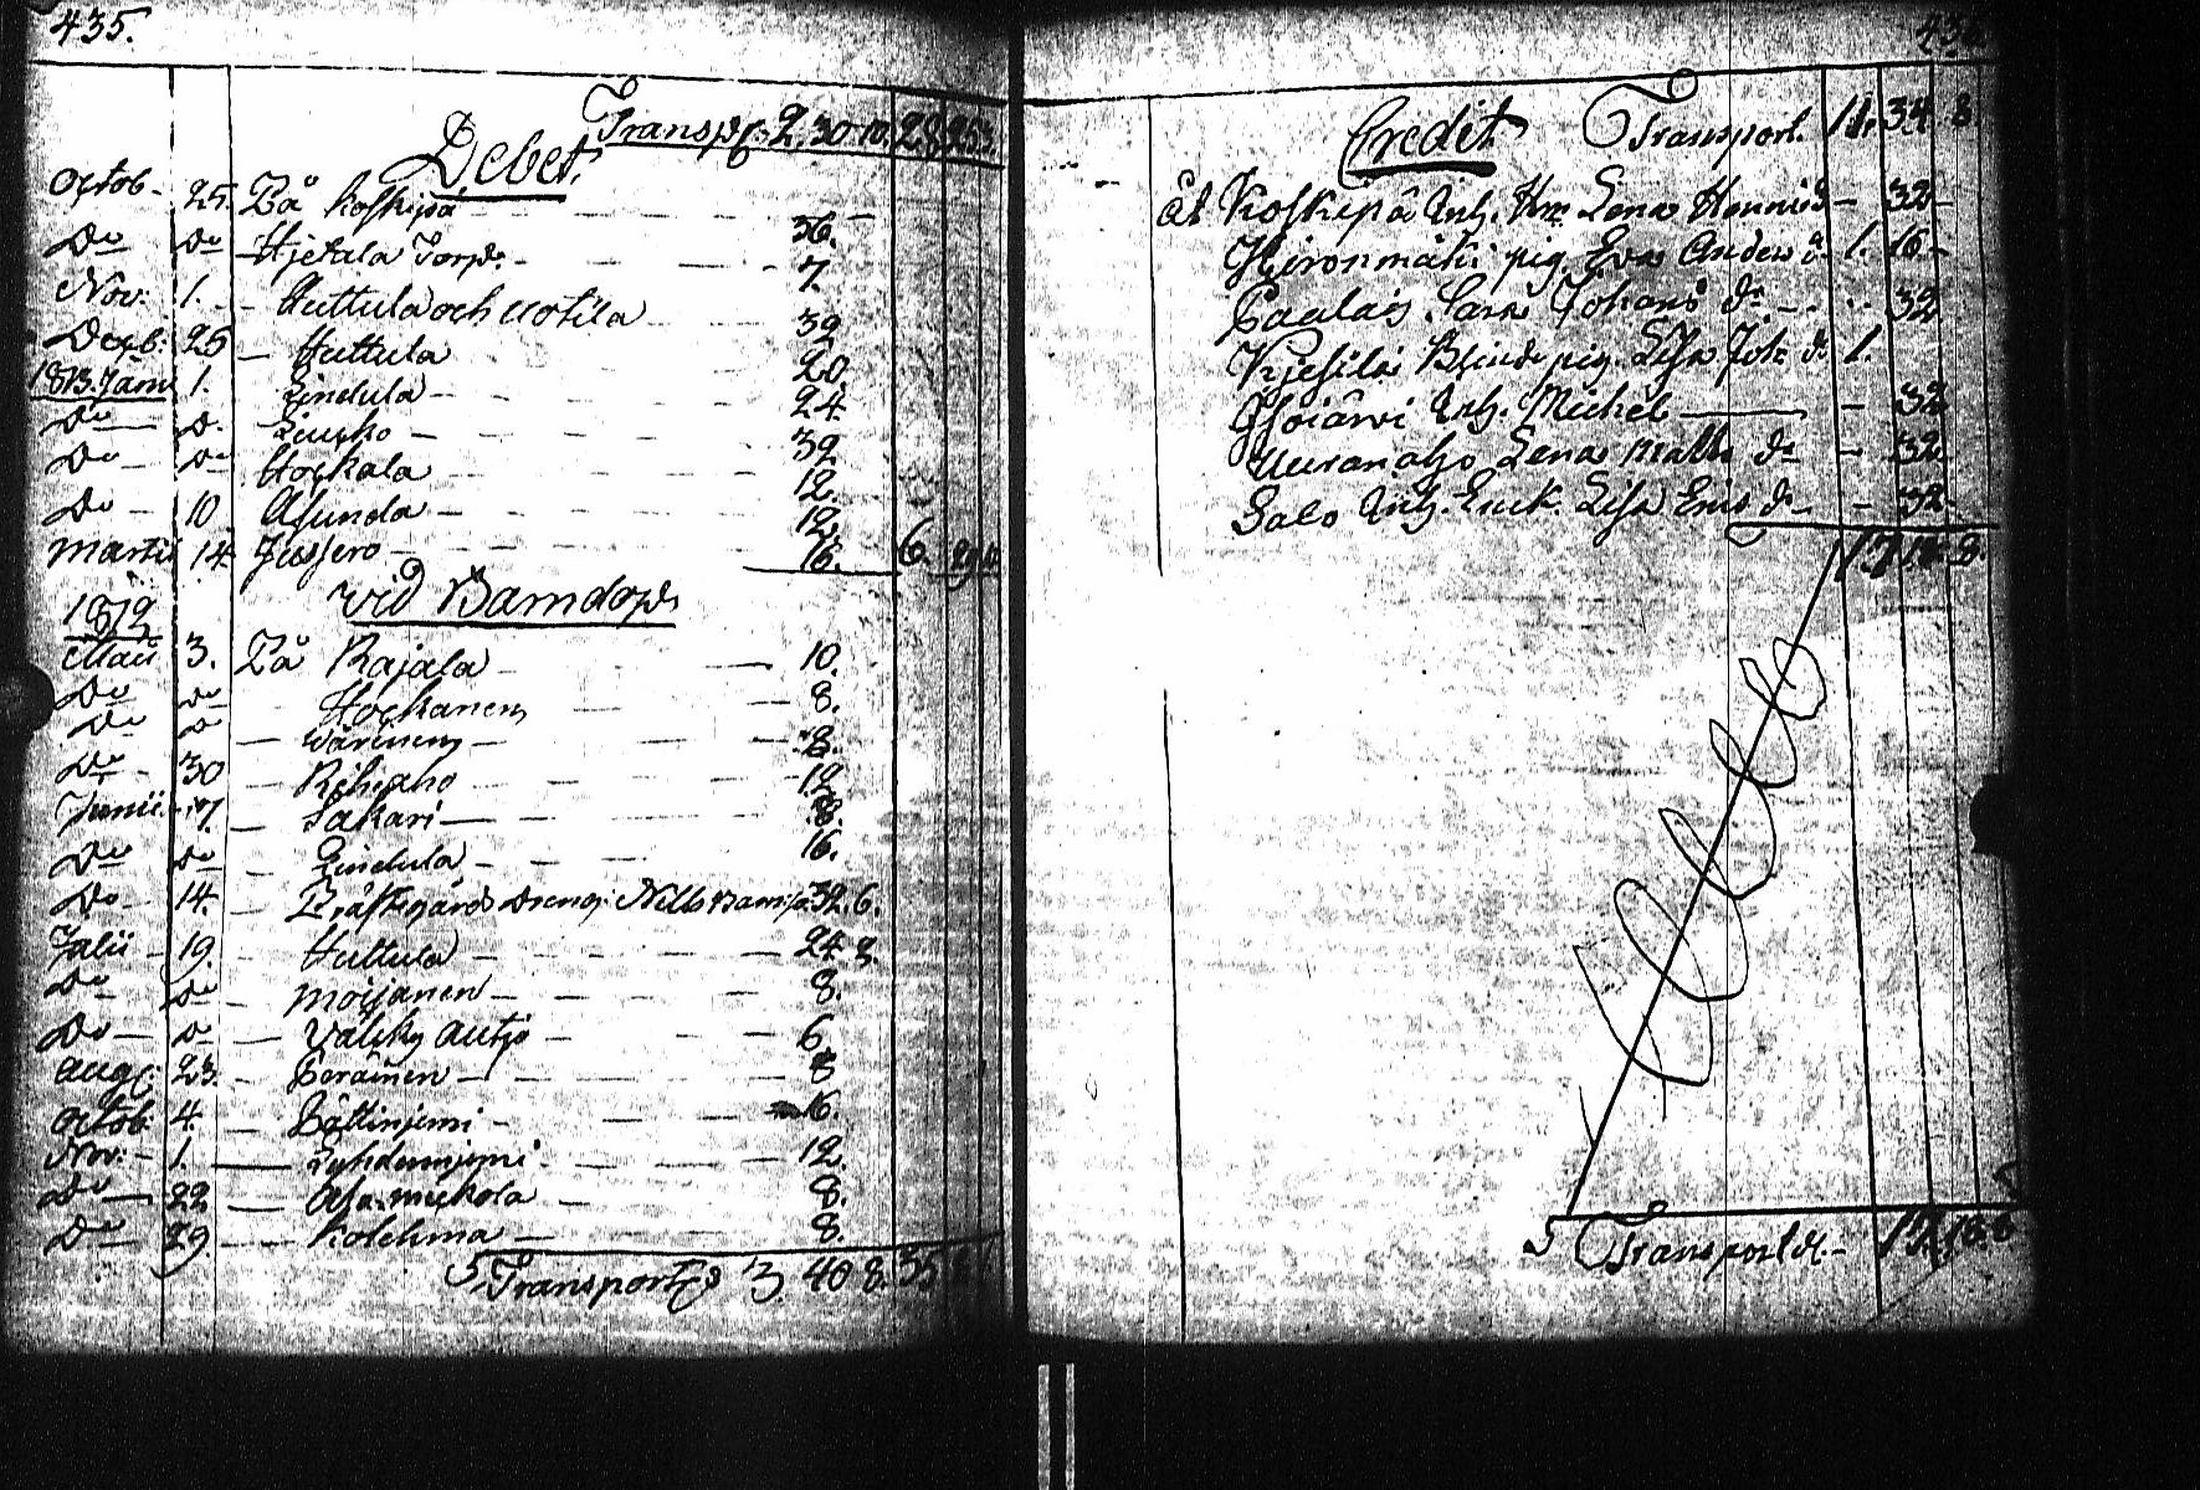 435.
Transp. 2. 30. 10. 28. 25. 3.
Debet.
Octob. 25. På Koskipä 36.
Do Do Hjetala Torp. 7.
Nov. 1. Huttula och Uotila 32
Decb: 25 Huttula 20.
1813. Janu 1. Lindula 24
Do D. 32
Do Do Hockala 12.
Do 10 Asunda 12.
Martii 14 Jussero 16. 6. 29
vid Barndop
1812
Maii 3. På Rajala 10.
Do Do Hockanen 8.
Do D Wärinen 8.
Do 30 Rihiaho 12
Junii 7. Sakari 8.
Do Do Lindula 16.
Do 14. Prästegårds dreng Nills Barn 32. 6.
Julii 19. Huttula 24. 8.
Do Do Moisanen 8.
Do D Autjo 6.
Aug: 23. Peräinen 8
Octob. 4. Pättiniemi 16.
Nov: 1. Lehdenniemi 12.
Do 22 Ala muckola 8.
Do 29 Kolehma 8.
Transport 3. 40. 8. 35
Credit Transport. 11. 34. 8
åt Koskipä Inh. Lena Henrics 32
Hironmäki pig. Eva Anders d. 1. 16
Johans dr 32
Blinde pig. Lisa Joh. dr 1.
Inh. Michel 32
Uuranaho Lena Matts dr 32
Salo Inh. Enk. Lisa Erics dr 32
17. 18. 8.
Transport 17. 18. 8